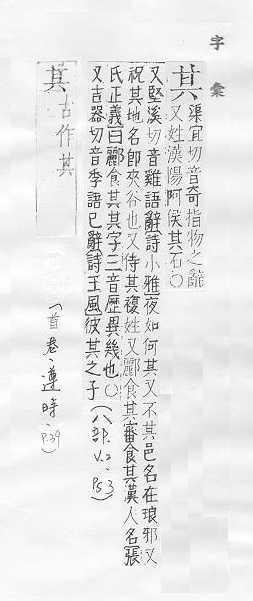 字彙
其 渠宜切音奇指物之辭
又姓漢陽阿侯其石〇
又堅溪切音雞語辭詩小雅夜如何其又不其邑名在琅邪又
祝其地名卽夾谷也又侍其複姓又酈食其審食其漢人名張
氏正義曰酈食其其字三音歷異幾也〇
又吉器切音季語已辭詩王風彼其之子(八部.V.2.P53)
其 古作其
「首卷.遵時.P.39